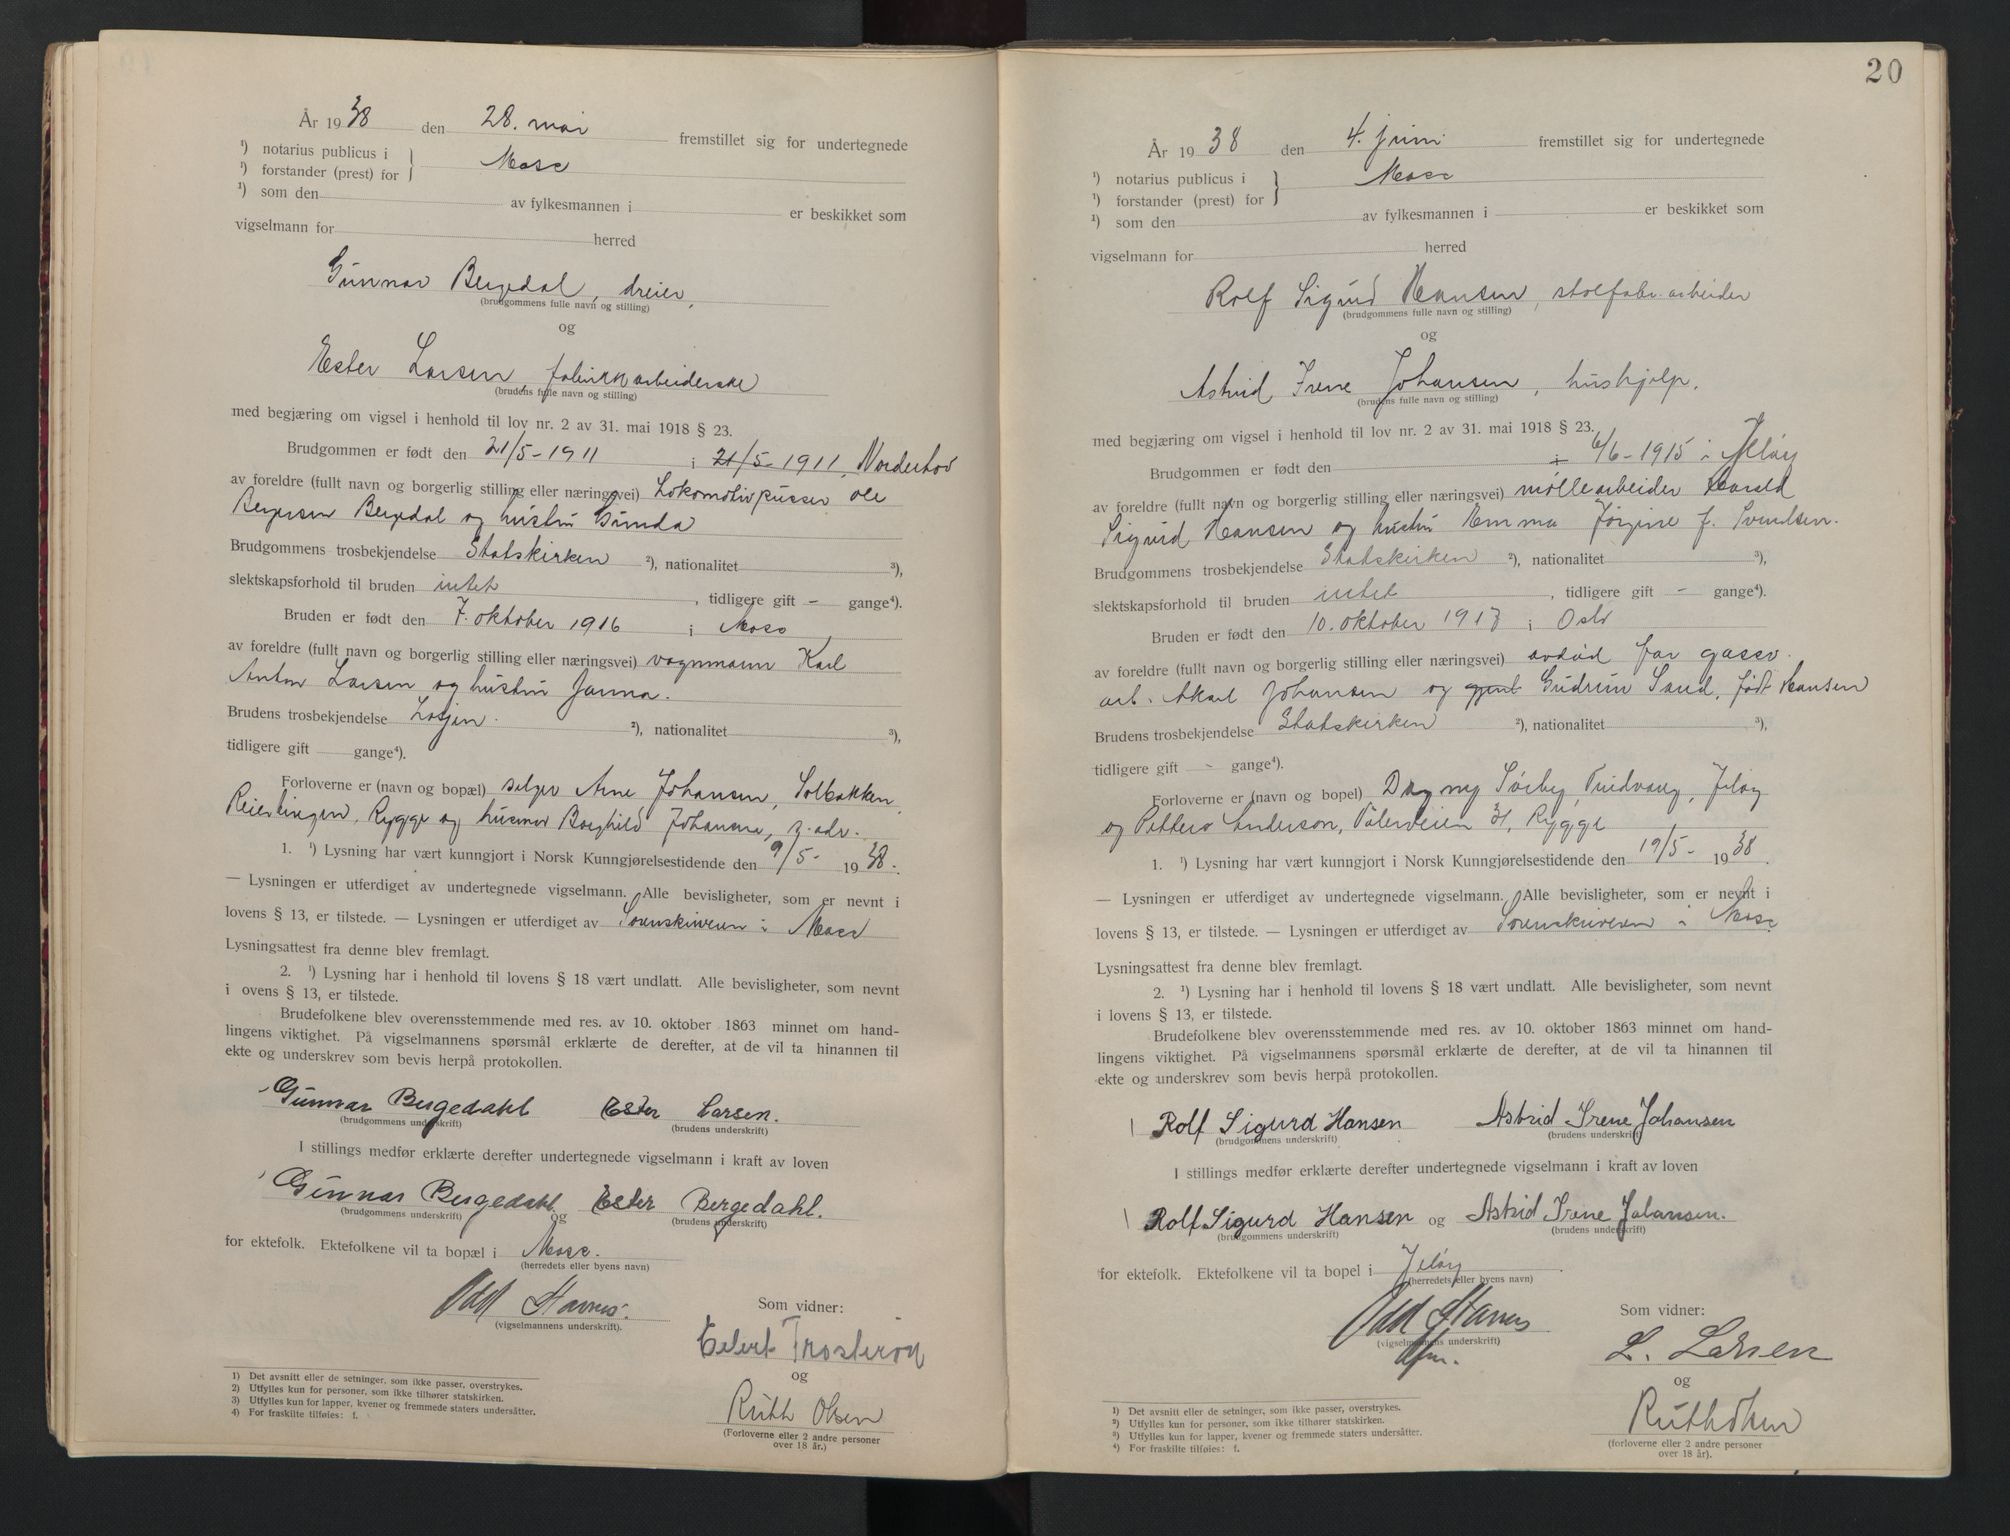 År 1938 den 28. mai fremstillet sig for undertegnede
¹) notarius publicus i } Moss
¹) forstander (prest) for
¹) som den av fylkesmannen i er beskikket som
vigselmann for herred
Gunnar Bergedal, dreier,
(brudgommens fulle navn og stilling)
og
Ester Larsen, fabrikkarbeiderske
(brudens fulle navn og stilling)
med begjæring om vigsel i henhold til lov nr. 2 av 31. mai 1918 § 23.
Brudgommen er født den 21/5-1911 i 21/5-1911, Norderhov
av foreldre (fullt navn og borgerlig stilling eller næringsvei) Lokomotivpusser Ole
Bergersen Bergedal og hustru Gunda
Brudgommens trosbekjendelse Statskirken ²), nationalitet ³),
slektskapsforhold til bruden intet, tidligere gift – gange⁴).
Bruden er født den 7. oktober 1916 i Moss,
av foreldre (fullt navn og borgerlig stilling eller næringsvei) vognmann Karl
Anton Larsen og hustru Janna.
Brudens trosbekjendelse ²), nationalitet ³),
tidligere gift gange⁴).
Forloverne er (navn og bopæl) selger Arne Johansen, Solbakken,
Reierlingen, Rygge og husmor Borghild Johansen, s. adr.
1. ¹) Lysning har vært kunngjort i Norsk Kunngjørelsestidende den 9/5- 1938.
— Lysningen er utferdiget av undertegnede vigselmann. Alle bevisligheter, som er nevnt i
lovens § 13, er tilstede. — Lysningen er utferdiget av Sorenskriveren i Moss
Lysningsattest fra denne blev fremlagt.
2. ¹) Lysning har i henhold til lovens § 18 vært undlatt. Alle bevisligheter, som nevnt
i ovens § 13, er tilstede.
Brudefolkene blev overensstemmende med res. av 10. oktober 1863 minnet om hand-
lingens viktighet. På vigselmannens spørsmål erklærte de derefter, at de vil ta hinannen til
ekte og underskrev som bevis herpå protokollen.
Gunnar Bergedahl Ester Larsen.
(brudgommens underskrift) (brudens underskrift)
I stillings medfør erklærte derefter undertegnede vigselmann i kraft av loven
Gunnar Bergedahl og Ester Bergedahl.
(brudgommens underskrift) (brudens underskrift)
for ektefolk. Ektefolkene vil ta bopæl i Moss.
(herredets eller byens navn)
Odd Stavnes.
(vigselmannens underskrift).
Som vidner:
Eilert Trosterod
og
Ruth Olsen
(Forloverne eller 2 andre personer
over 18 år.)
1) Det avsnitt eller de setninger, som ikke passer, overstrykes.
2) Utfylles kun for personer, som ikke tilhører statskirken.
3) Utfylles kun for lapper, kvener og fremmede staters undersåtter.
4) For fraskilte tilføies: f.
20
År 1938 den 4. juni fremstillet sig for undertegnede
¹) notarius publicus i } Moss
¹) forstander (prest) for
¹) som den av fylkesmannen i er beskikket som
vigselmann for herred
Rolf Sigurd Hansen, stolfabr. arbeider
(brudgommens fulle navn og stilling)
og
Astrid Irene Johansen, hushjelp.
(brudens fulle navn og stilling)
med begjæring om vigsel i henhold til lov nr. 2 av 31. mai 1918 § 23.
Brudgommen er født den i 6/6-1915 i Jeløy
av foreldre (fullt navn og borgerlig stilling eller næringsvei) møllearbeider Harald
Sigurd Hansen og hustru Emma Jørgine f. Svendsen.
Brudgommens trosbekjendelse Statskirken ²), nationalitet ³),
slektskapsforhold til bruden intet, tidligere gift – gange⁴).
Bruden er født den 10. oktober 1917 i Oslo
av foreldre (fullt navn og borgerlig stilling eller næringsvei) avdød far gassv.
arb. Johansen og Gudrun Sand, født Hansen
Brudens trosbekjendelse Statskirken ²), nationalitet ³),
tidligere gift - gange⁴).
Forloverne er (navn og bopel) Dagny Sørby, Jeløy
og Petter Anderson, Vålerveien 31, Rygge
1. ¹) Lysning har vært kunngjort i Norsk Kunngjørelsestidende den 19/5- 1938.
— Lysningen er utferdiget av undertegnede vigselmann. Alle bevisligheter, som er nevnt i
lovens § 13, er tilstede. — Lysningen er utferdiget av Sorenskriveren i Moss
Lysningsattest fra denne blev fremlagt.
2. ¹) Lysning har i henhold til lovens § 18 vært undlatt. Alle bevisligheter, som nevnt
i lovens § 13, er tilstede.
Brudefolkene blev overensstemmende med res. av 10. oktober 1863 minnet om hand-
lingens viktighet. På vigselmannens spørsmål erklærte de derefter, at de vil ta hinannen til
ekte og underskrev som bevis herpå protokollen.
Rolf Sigurd Hansen Astrid Irene Johansen
(brudgommens underskrift) (brudens underskrift)
I stillings medfør erklærte derefter undertegnede vigselmann i kraft av loven
Rolf Sigurd Hansen og Astrid Irene Johansen.
(brudgommens underskrift) (brudens underskrift)
for ektefolk. Ektefolkene vil ta bopel i Jeløy.
(herredets eller byens navn)
Odd Stavnes
(vigselmannens underskrift)
Som vidner:
L. Larsen
og
Ruth Olsen
(forloverne eller 2 andre personer
over 18 år).
¹) Det avsnitt eller de setninger, som ikke passer, overstrykes.
²) Utfylles kun for personer, som ikke tilhører statskirken.
³) Utfylles kun for lapper, kvener og fremmede staters undersåtter.
⁴) For fraskilte tilføies: f.